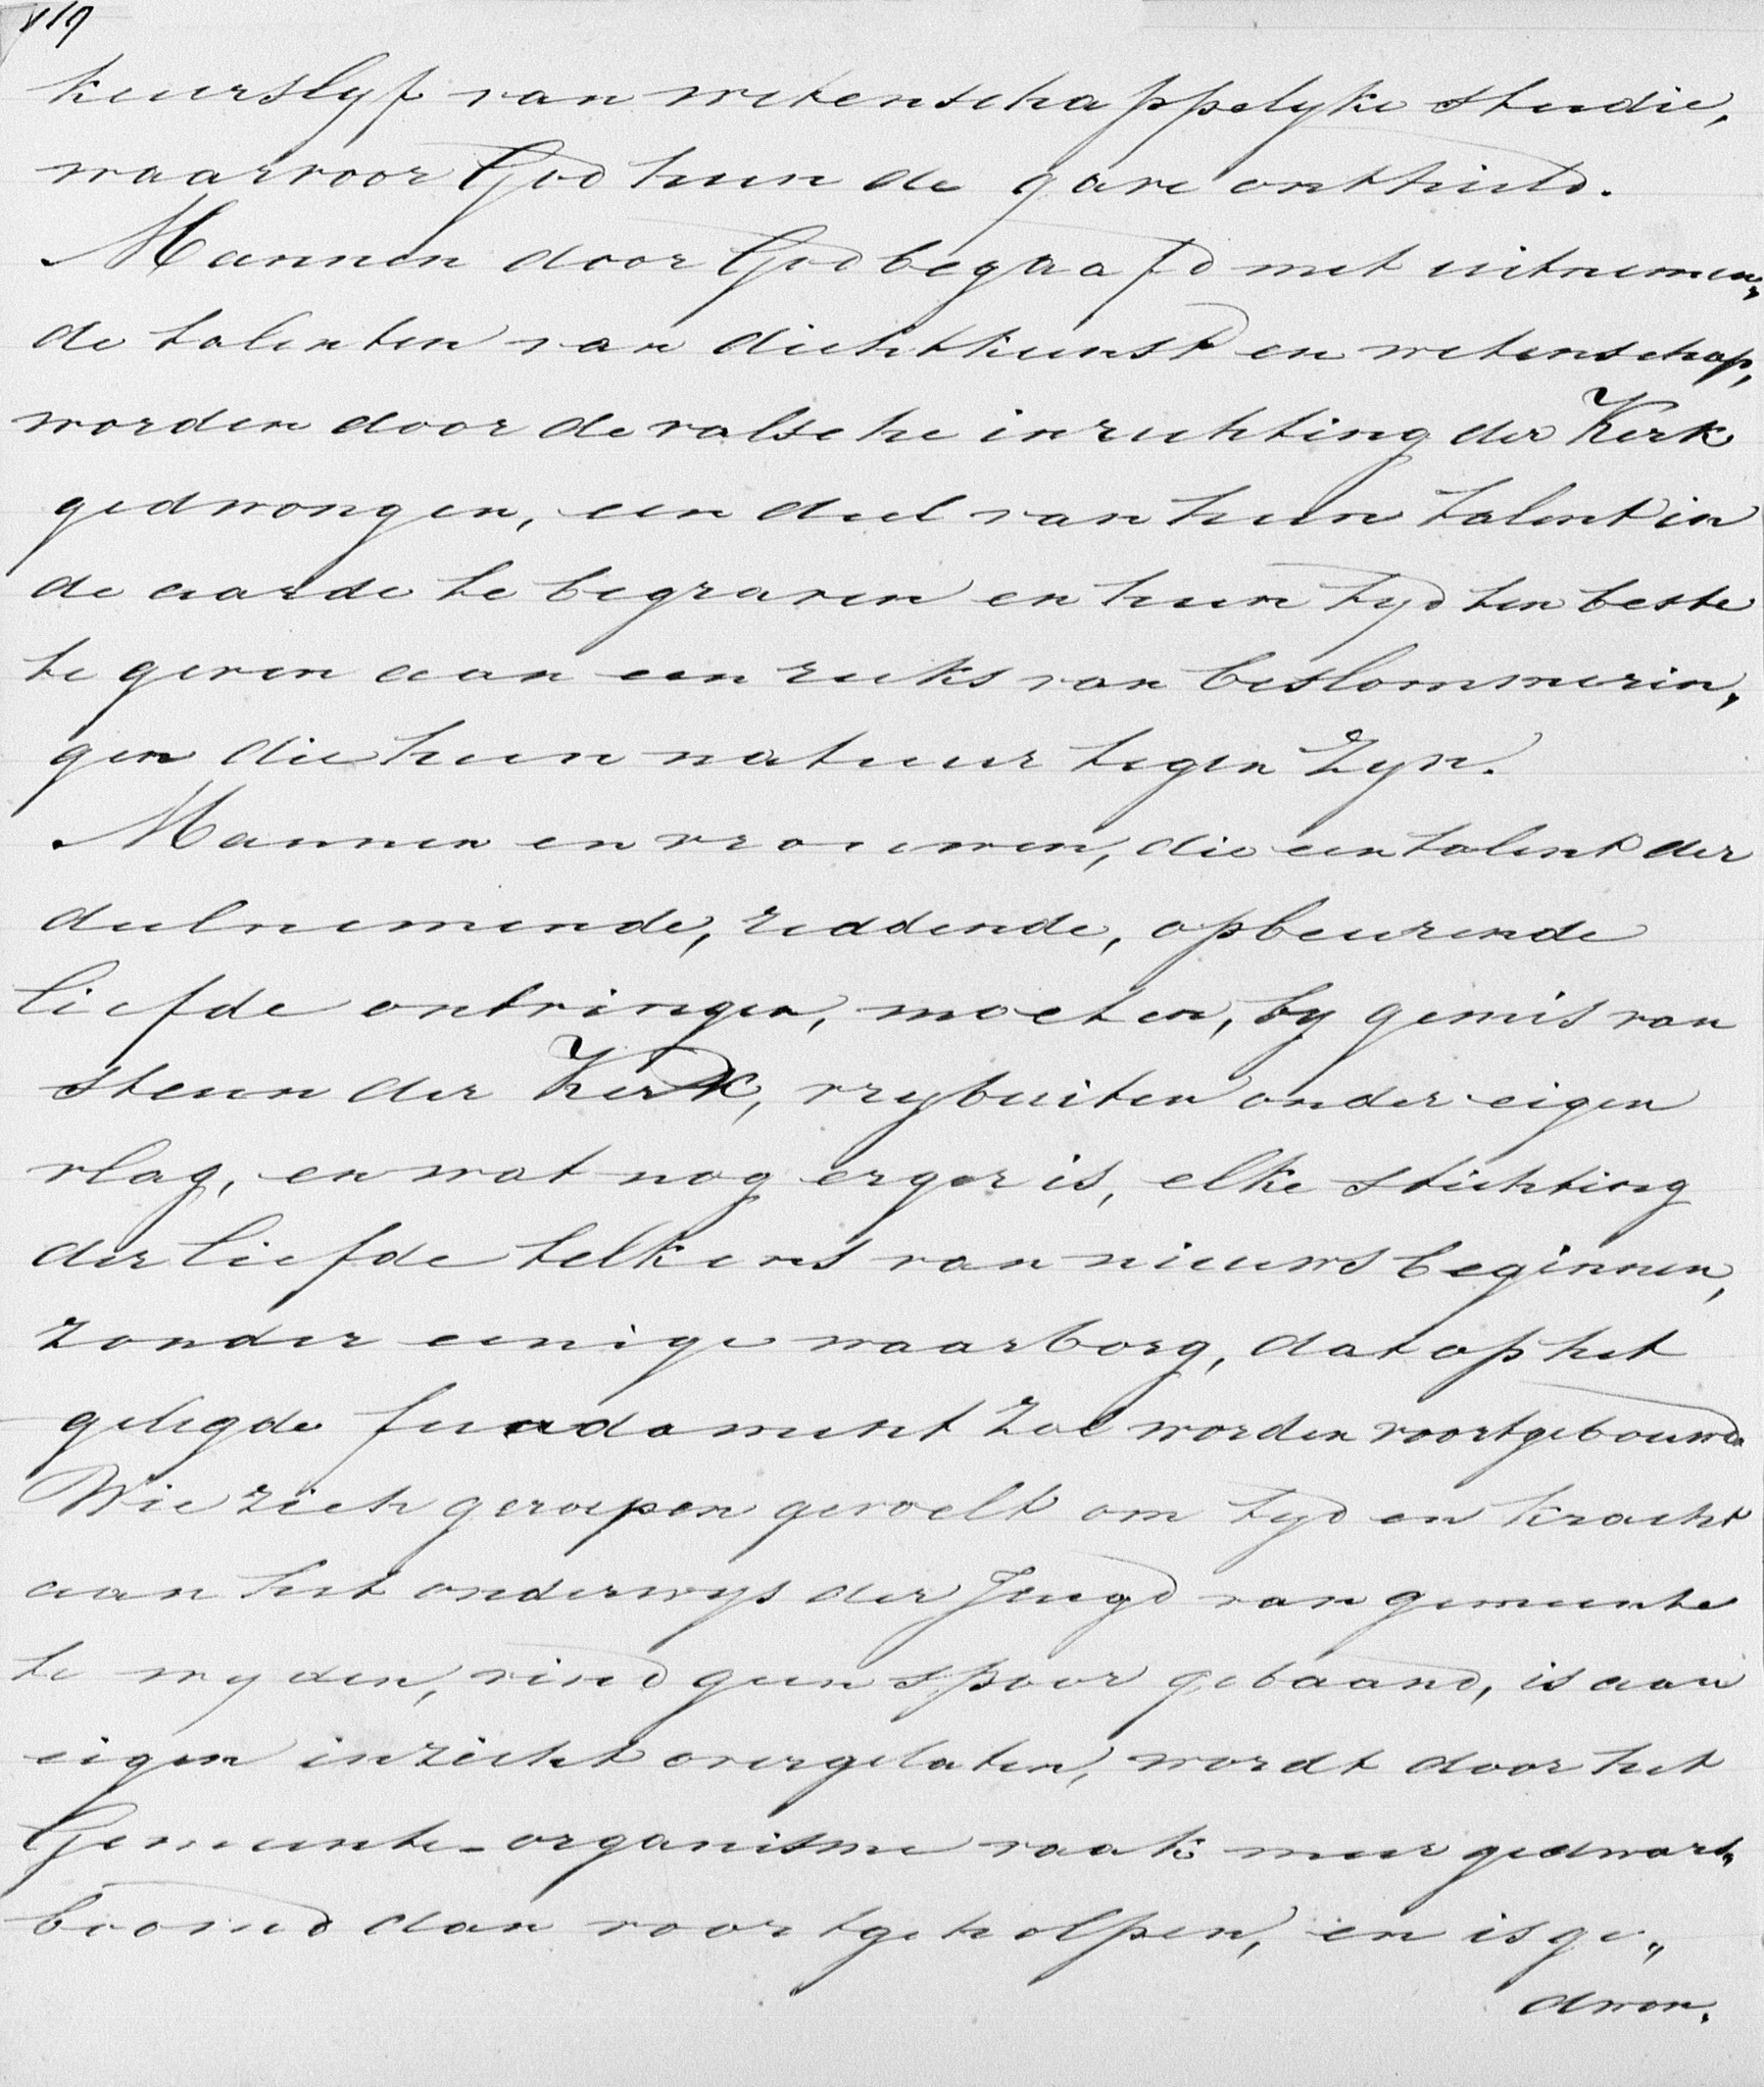 keurslyf van wetenschappelyke studie,
waarvoor God hun de gave onthield.
Mannen door God begaafd met uitnemen„
de talenten van dichtkunst en wetenschap,
worden door de valsche inrichting der Kerk
gedwongen, een deel van hun talent in
de aarde te begraven en hun tyd ten beste
te geven aan een reeks van beslommerin„
gen die hun natuur tegen zyn.
Mannen en vrouwen, die een talent der
deelnemende, reddende, opbeurende
liefde ontvingen, moeten, by gemis van
steun der Kerk, vrybuiten onder eigen
vlag, en wat nog erger is, elke stichting
der liefde telkens van nieuws beginnen,
zonder eenige waarborg, dat op het
gelegde fundament zal worden voortgebouwd.
Wie zich geroepen gevoelt om tyd en kracht
aan het onderwys der Jeugd van gemeente
te wyden, vind geen spoor gebaand, is aan
eigen inzicht overgelaten, wordt door het
Gemeente-organisme vaak meer gedwars„
boomd dan voortgeholpen, en is ge„
dwon.